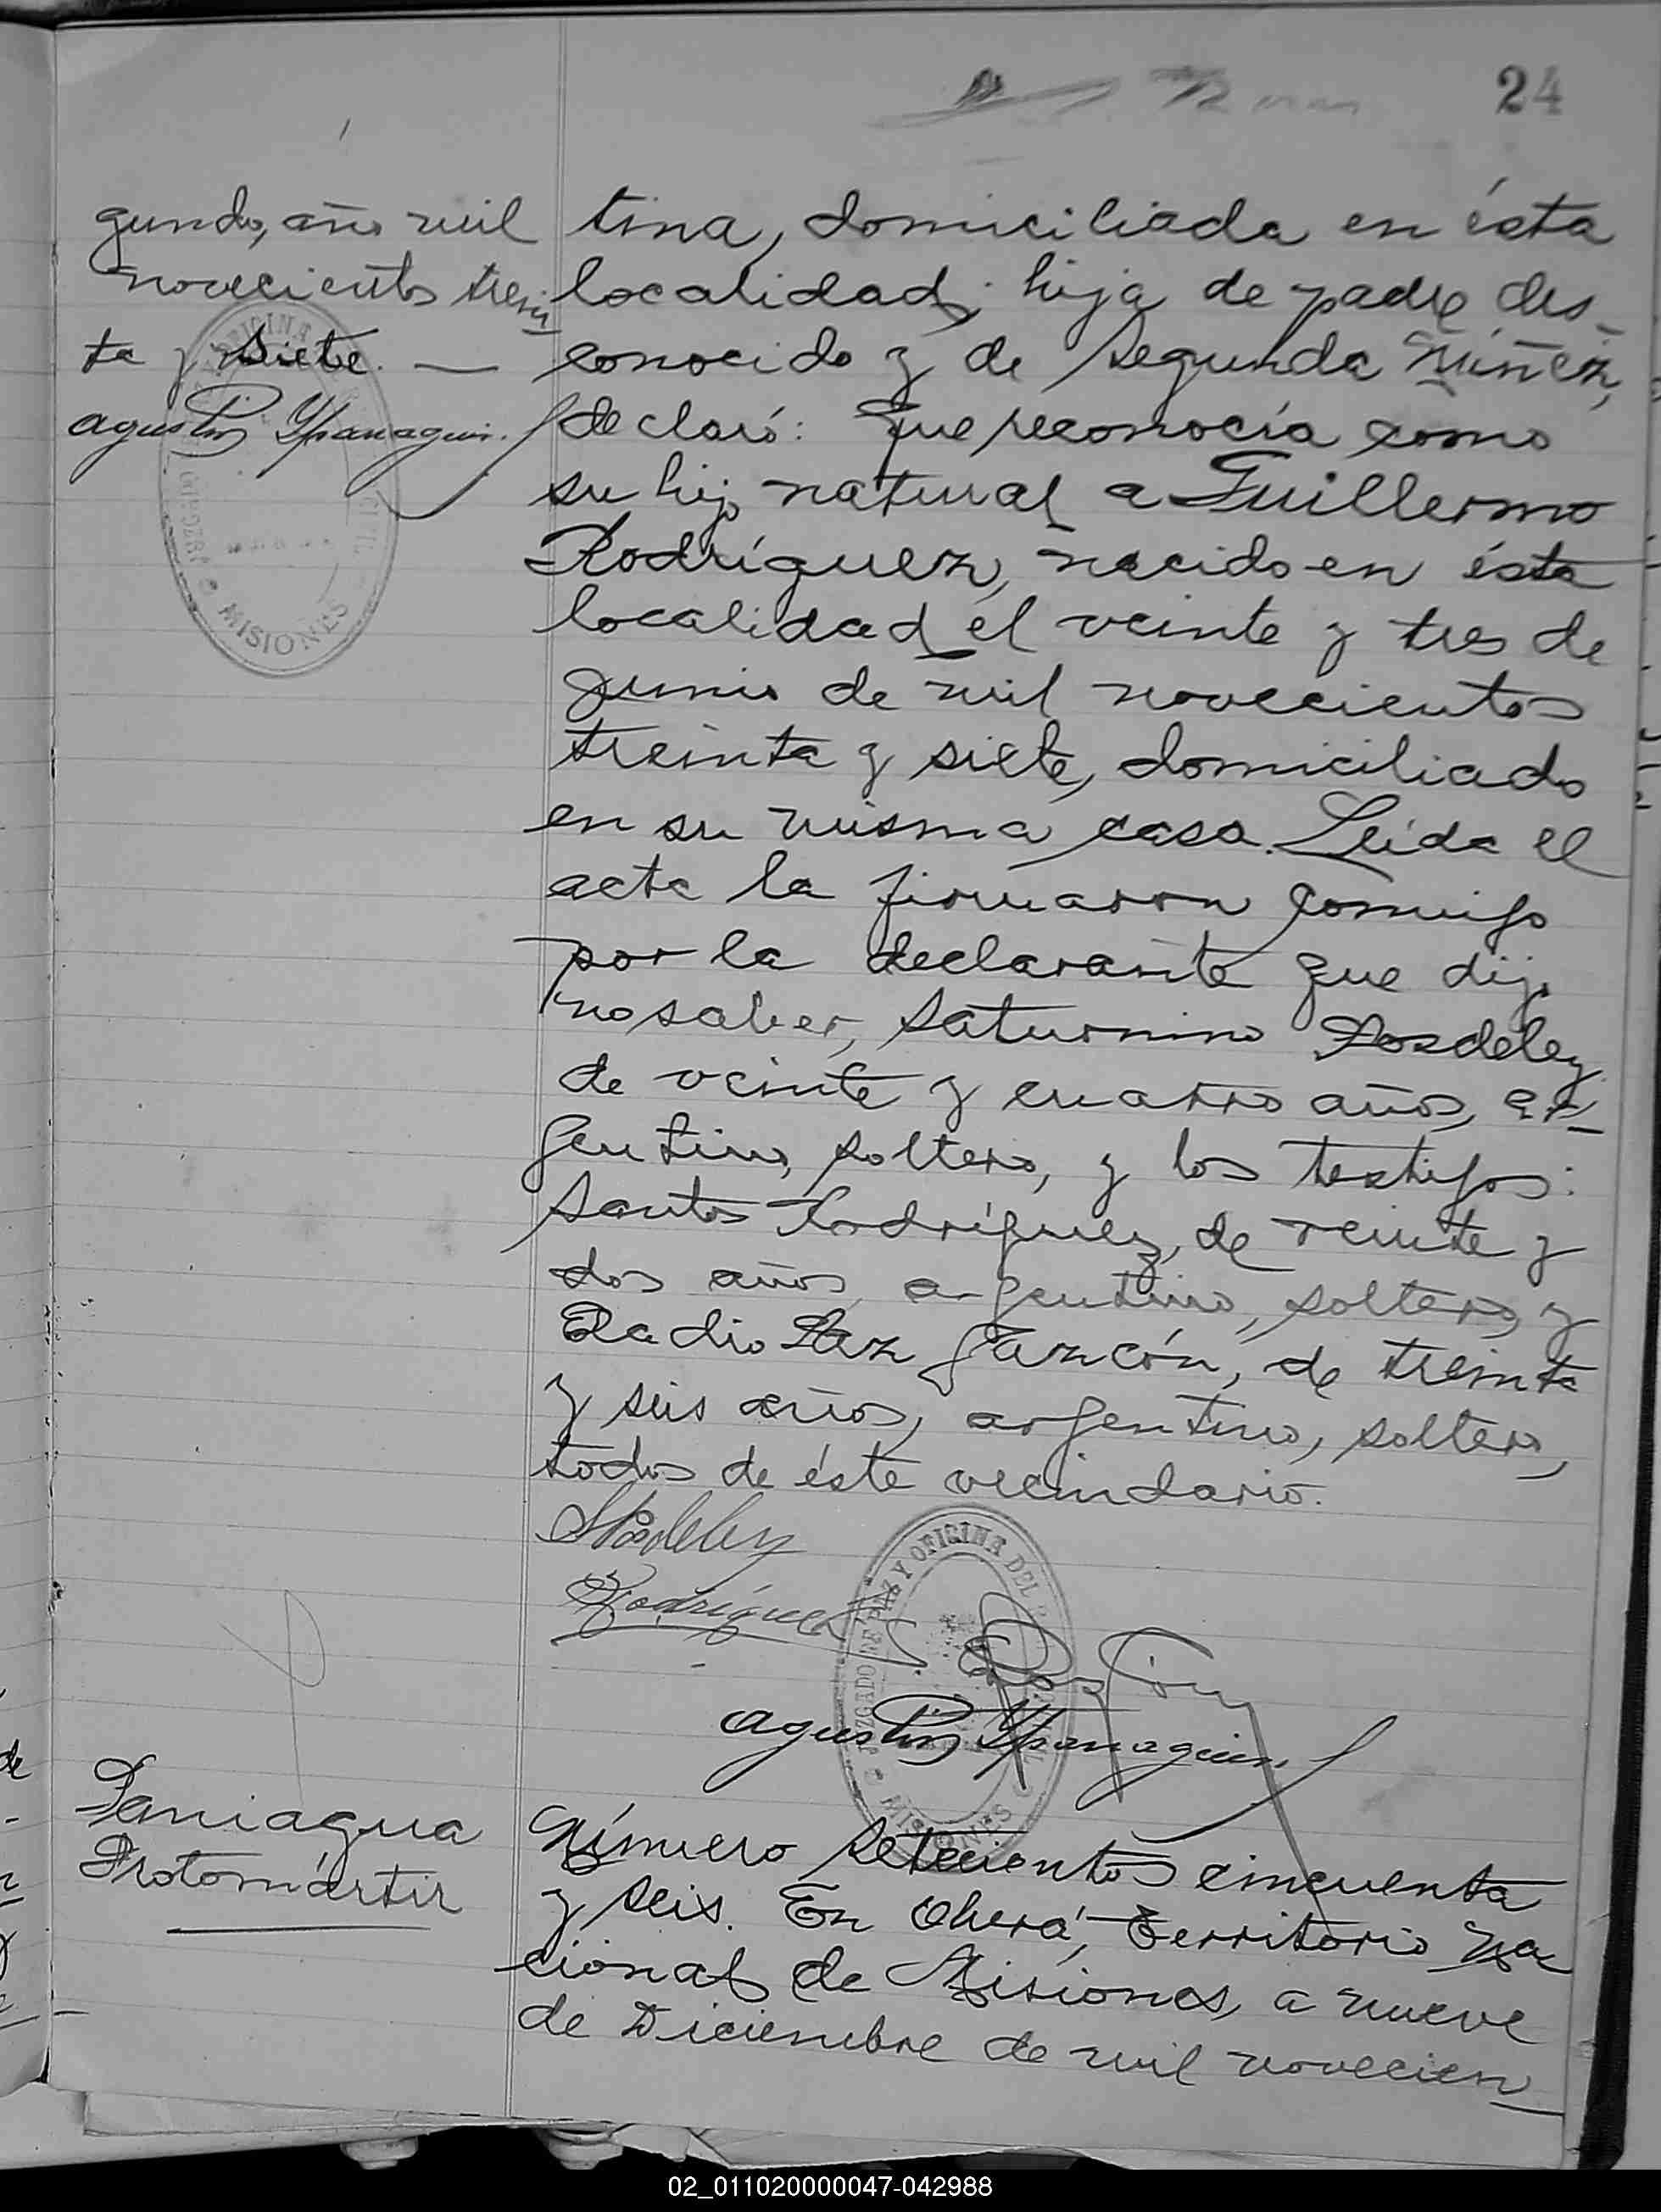 24
gundo, año mil
novecientos trein
ta y siete. —
Agustin Ypanaguir
tina, domiciliada en ésta
localidad, hija de padre des_
conocido y de Segunda Núñez,
declaró: Que reconocía como
su hijo natural a Guillermo
Rodríguez, nacido en ésta
localidad el veinte y tres de
Junio de mil novecientos
treinta y siete, domiciliado
en su misma casa. Leída el
acta la firmaron conmigo
por la declarante que dijo
no saber, Saturnino
de veinte y cuatro años, ar_
gentino, soltero, y los testigos:
Santos Rodríguez, de veinte y
dos años, argentino, soltero, y
Eladio Paz Garzón, de treinta
y seis años, argentino, soltero,
todos de éste vecindario.
Rodríguez
JUZGADO DE PAZ Y OFICINA DEL
MISIONES
Agustin Ypanaguir
Paniagua
Protomártir
Número setecientos cincuenta
y seis. En Oberá, Territorio Na
cional de Misiones, a nueve
de Diciembre de mil novecien_
02_011020000047-042988